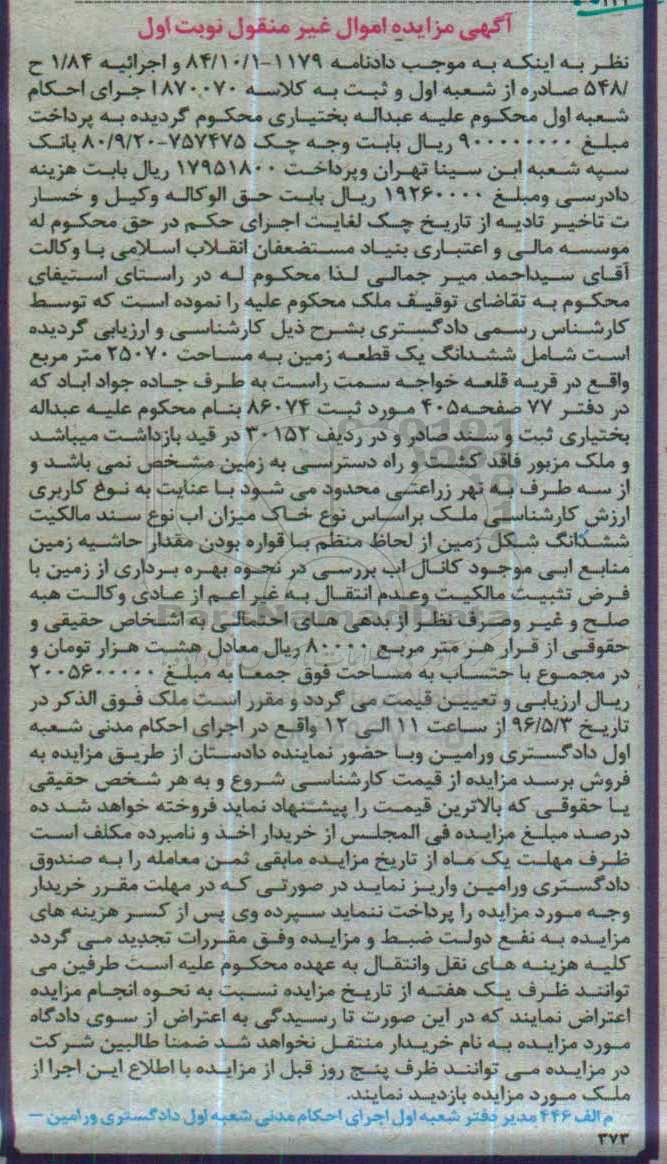 آگهی مزایده اموال غیر منقول نوبت اول
نظر به اینکه به موجب دادنامه ۱۱۷۹-۸۴/۱۰/۱ و اجرائیه ۱/۸۴ ح
/۵۴۸ صادره از شعبه اول و ثبت به کلاسه ۱۸۷۰.۰۷۰ جرای احکام
شعبه اول محکوم علیه عبداله بختیاری محکوم گردیده به پرداخت
مبلغ ۹۰۰۰۰۰۰۰۰ ریال بابت وجه چک ۷۵۷۴۷۵-۸۰/۹/۲۰ بانک
سپه شعبه ابن سینا تهران وپرداخت ۱۷۹۵۱۸۰۰ ریال بابت هزینه
دادرسی ومبلغ ۱۹۲۶۰۰۰۰ ریال بابت حق الوکاله وکیل و خسار
ت تاخیر تادیه از تاریخ چک لغایت اجرای حکم در حق محکوم له
موسسه مالی و اعتباری بنیاد مستضعفان انقلاب اسلامی با وکالت
آقای سیداحمد میر جمالی لذا محکوم له در راستای استیفای
محکوم به تقاضای توقیف ملک محکوم علیه را نموده است که توسط
کارشناس رسمی دادگستری بشرح ذیل کارشناسی و ارزیابی گردیده
است شامل ششدانگ یک قطعه زمین به مساحت ۲۵۰۷۰ متر مربع
واقع در قریه قلعه خواجه سمت راست به طرف جاده جواد اباد که
در دفتر ۷۷ صفحه۴۰۵ مورد ثبت ۸۶۰۷۴ بنام محکوم علیه عبداله
بختیاری ثبت و سند صادر و در ردیف ۳۰۱۵۲ در قید بازداشت میباشد
و ملک مزبور فاقد کشت و راه دسترسی به زمین مشخص نمی باشد و
از سه طرف به نهر زراعتی محدود می شود با عنایت به نوع کاربری
ارزش کارشناسی ملک براساس نوع خاک میزان اب نوع سند مالکیت
ششدانگ شکل زمین از لحاظ منظم با قواره بودن مقدار حاشیه زمین
منابع ابی موجود کانال اب بررسی در نحوه بهره برداری از زمین با
فرض تثبیت مالکیت وعدم انتقال به غیر اعم از عادی وکالت هبه
صلح و غیر وصرف نظر از بدهی های احتمالی به اشخاص حقیقی و
حقوقی از قرار هر متر مربع ۸۰۰۰۰ ریال معادل هشت هزار تومان و
در مجموع با حتساب به مساحت فوق جمعا به مبلغ ۲۰۰۵۶۰۰۰۰۰
ریال ارزیابی و تعیین قیمت می گردد و مقرر است ملک فوق الذکر در
تاریخ ۹۶/۵/۳ از ساعت ۱۱ الی ۱۲ واقع در اجرای احکام مدنی شعبه
اول دادگستری ورامین وبا حضور نماینده دادستان از طریق مزایده به
فروش برسد مزایده از قیمت کارشناسی شروع و به هر شخص حقیقی
یا حقوقی که بالاترین قیمت را پیشنهاد نماید فروخته خواهد شد ده
درصد مبلغ مزایده فی المجلس از خریدار اخذ و نامبرده مکلف است
ظرف مهلت یک ماه از تاریخ مزایده مابقی ثمن معامله را به صندوق
دادگستری ورامین واریز نماید در صورتی که در مهلت مقرر خریدار
وجه مورد مزایده را پرداخت ننماید سپرده وی پس از کسر هزینه های
مزایده به نفع دولت ضبط و مزایده وفق مقررات تجدید می گردد
کلیه هزینه های نقل وانتقال به عهده محکوم علیه است طرفین می
توانند ظرف یک هفته از تاریخ مزایده نسبت به نحوه انجام مزایده
اعتراض نمایند که در این صورت تا رسیدگی به اعتراض از سوی دادگاه
مورد مزایده به نام خریدار منتقل نخواهد شد ضمنا طالبین شرکت
در مزایده می توانند ظرف پنج روز قبل از مزایده با اطلاع این اجرا از
ملک مورد مزایده بازدید نمایند.
م الف ۴۴۶ مدیر دفتر شعبه اول اجرای احکام مدنی شعبه اول دادگستری ورامین –
۳۷۳